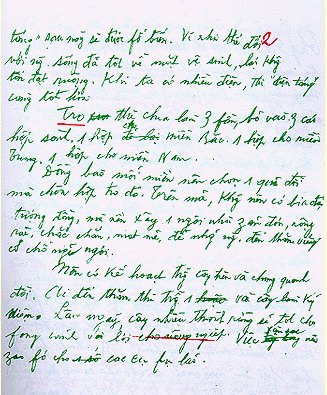 táng" sau này sẽ được fổ biến. Vì như thế đối 2
với ng. sống đã tốt về mặt vệ sinh, lại khg
tốn đất ruộng. Khi ta có nhiều điện, thì "điện táng"
càng tốt hơn.
Tro thì chia làm 3 fần, bỏ vào 3 cái
hộp sành, 1 hộp cho miền Bắc. 1 hộp cho miền
Trung. 1 hộp cho miền Nam.
Đồng bào mỗi miền nên chọn 1 quả đồi
mà chôn hộp tro đó. Trên mả, khg nên có bia đá
tượng đồng, mà nên xây 1 ngôi nhà zản đơn, rộng
rãi, chắc chắn, mát mẻ, để nhg ng. đến thăm viếng
có chỗ nghỉ ngơi.
Nên có kế hoạch trg cây trên và chung quanh
đồi. Ai đến thăm thì trg 1 và cây làm kỷ
niệm. Lâu ngày, cây nhiều thành rừng sẽ tốt cho
fong cảnh và lợi cho nông nghiệp. Việc
zao fó cho các cụ fụ lão.